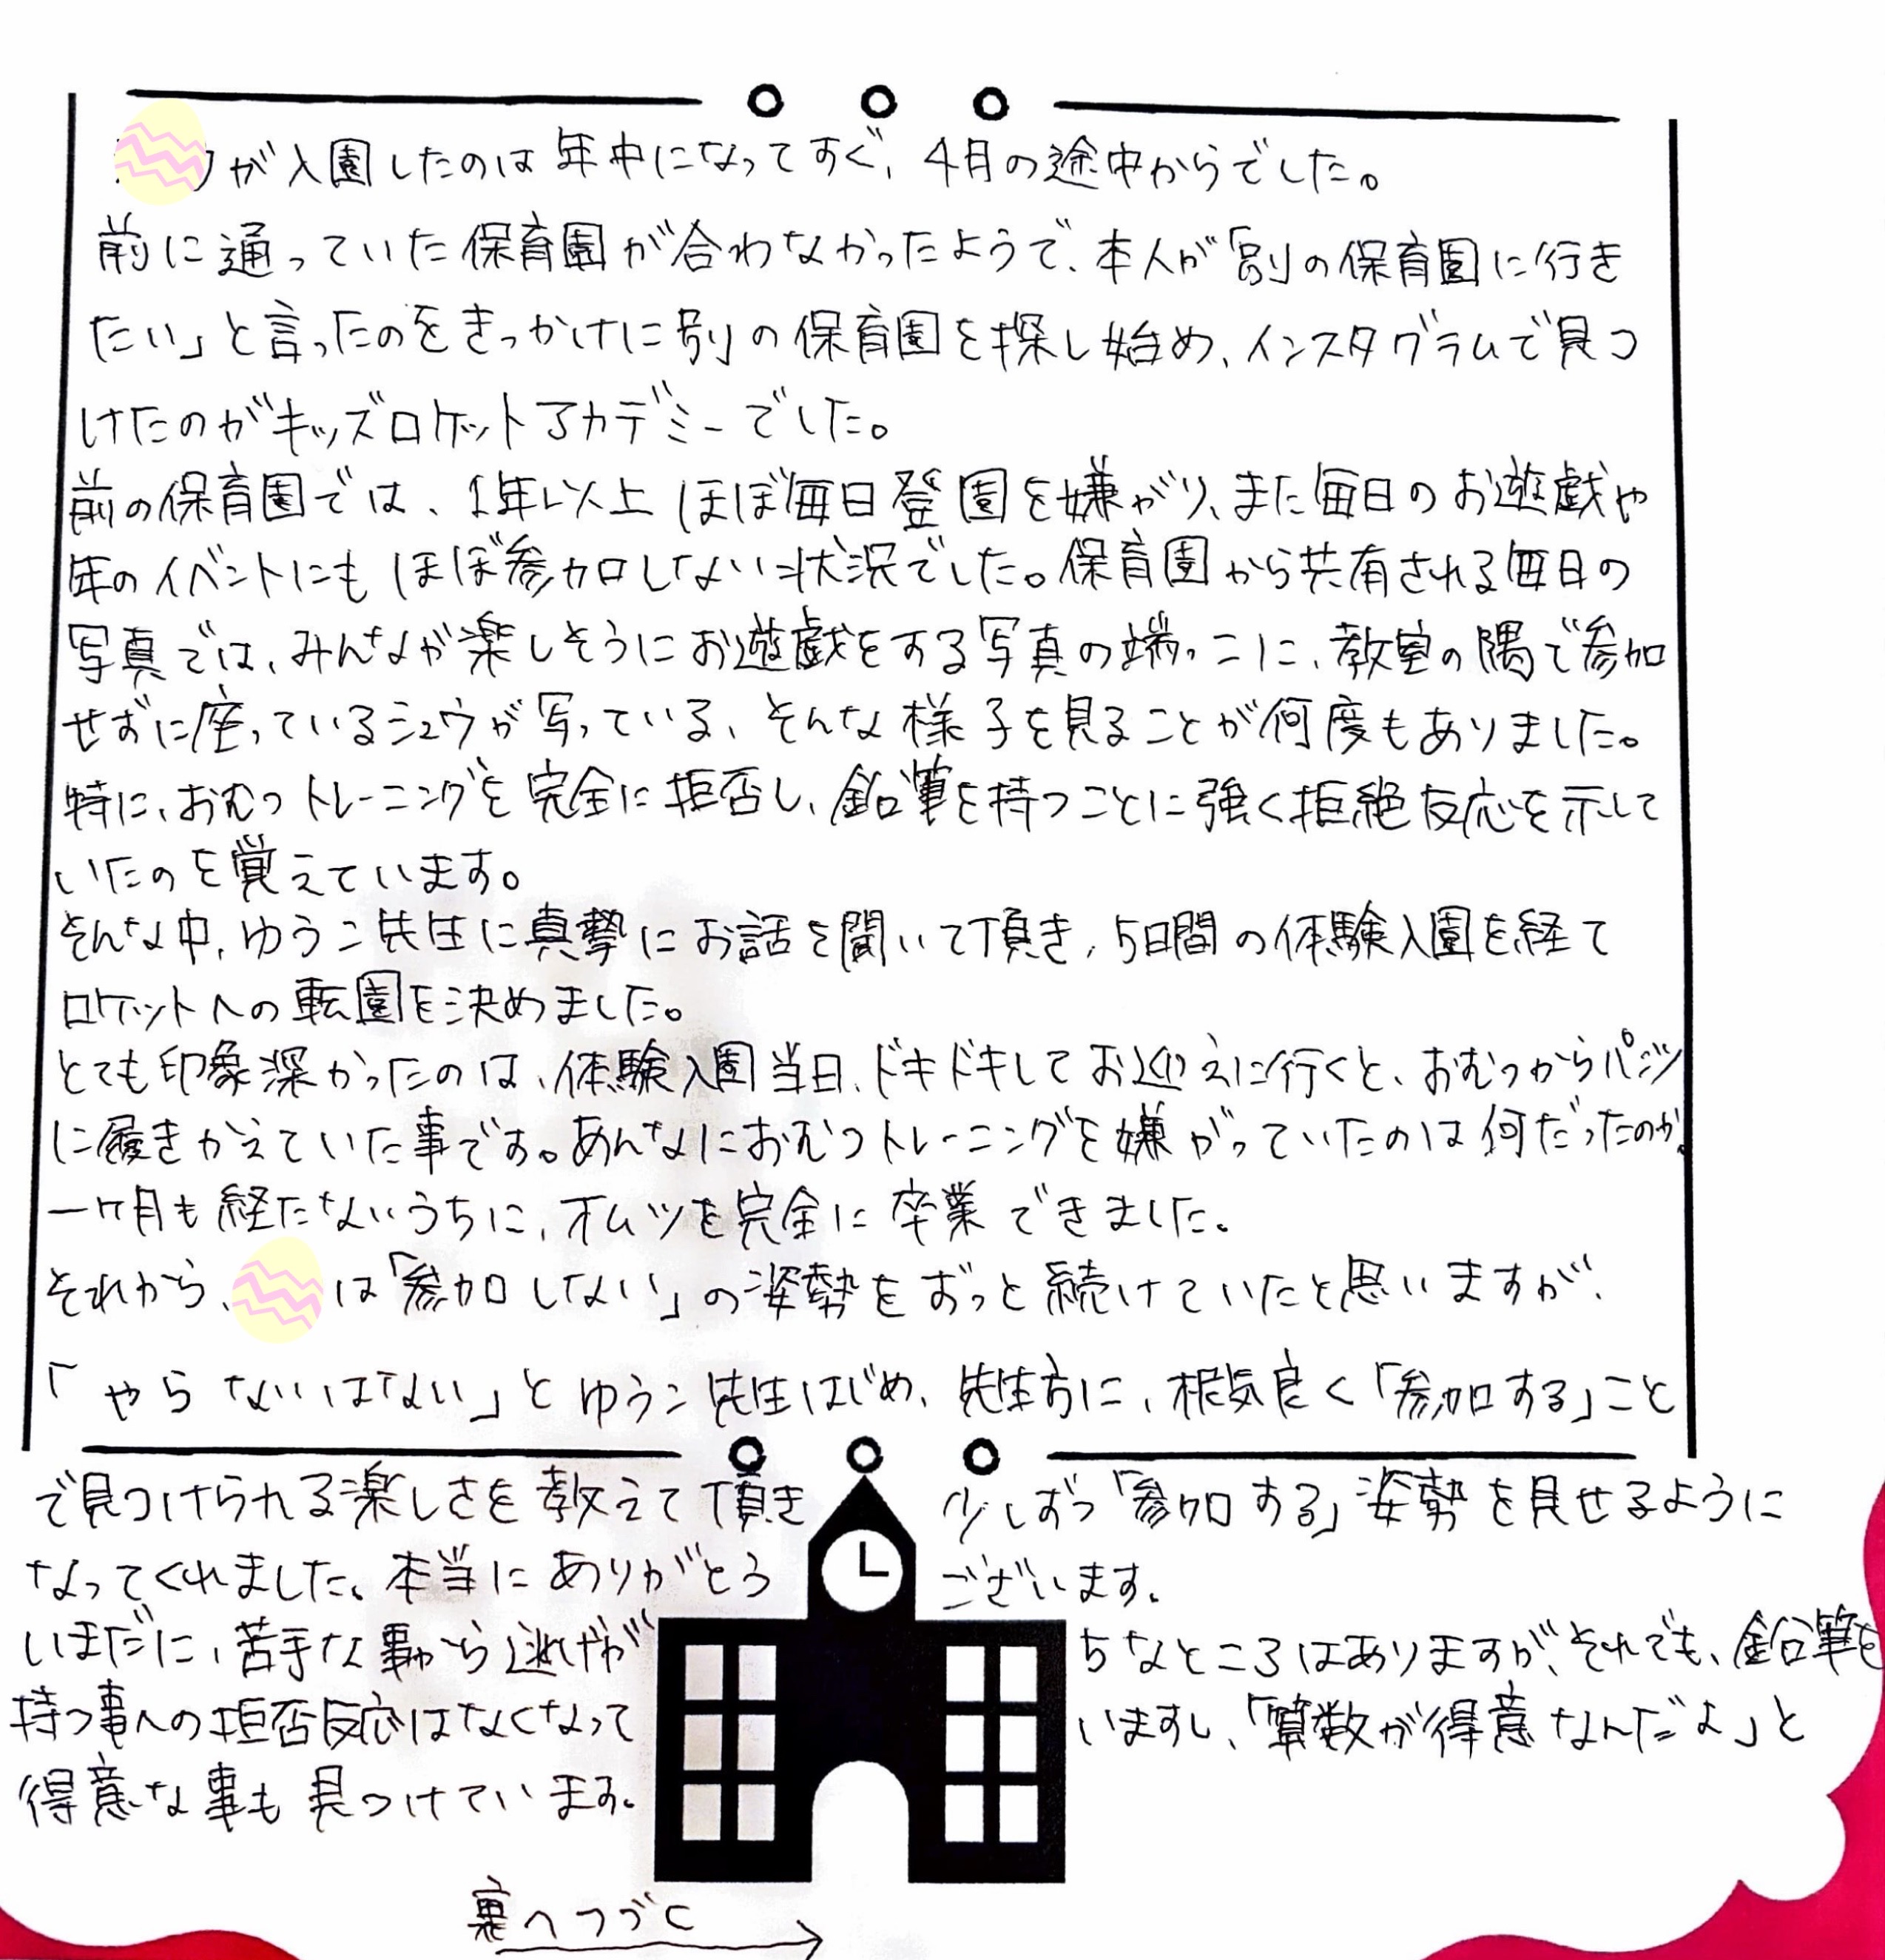 が入園したのは年中になってすぐ、4月の途中からでした。
前に通っていた保育園が合わなかったようで、本人が「別の保育園に行き
たい」と言ったのをきっかけに別の保育園を探し始め、インスタグラムで見つ
けたのがキッズロケットアカデミーでした。
前の保育園では、1年以上ほぼ毎日登園を嫌がり、また毎日のお遊戯や
年のイベントにもほぼ参加しない状況でした。保育園から共有される毎日の
写真では、みんなが楽しそうにお遊戯をする写真の端っこに、教室の隅で参加
せずに座っているシュウが写っている、そんな様子を見ることが何度もありました。
特に、おむつトレーニングを完全に拒否し、鉛筆を持つことに強く拒絶反応を示して
いたのを覚えています。
そんな中、ゆうこ先生に真摯にお話を聞いて頂き、5日間の体験入園を経て
ロケットへの転園を決めました。
とても印象深かったのは、体験入園当日、ドキドキしてお迎えに行くと、おむつからパンツ
に履きかえていた事です。あんなにおむつトレーニングを嫌がっていたのは何だったのか、
一ヶ月も経たないうちに、オムツを完全に卒業できました。
それから、は「参加しない」の姿勢をずっと続けていたと思いますが、
「やらないはない」とゆうこ先生はじめ、先生方に、根気良く「参加する」こと
で見つけられる楽しさを教えて頂き 少しずつ「参加する」姿勢を見せるように
なってくれました。本当にありがとうございます。
いまだに、苦手な事から逃げがちなところはありますが、それでも、鉛筆を
持つ事への拒否反応はなくなっていますし、「算数が得意なんだよ」と
得意な事も見つけています。
裏へつづく